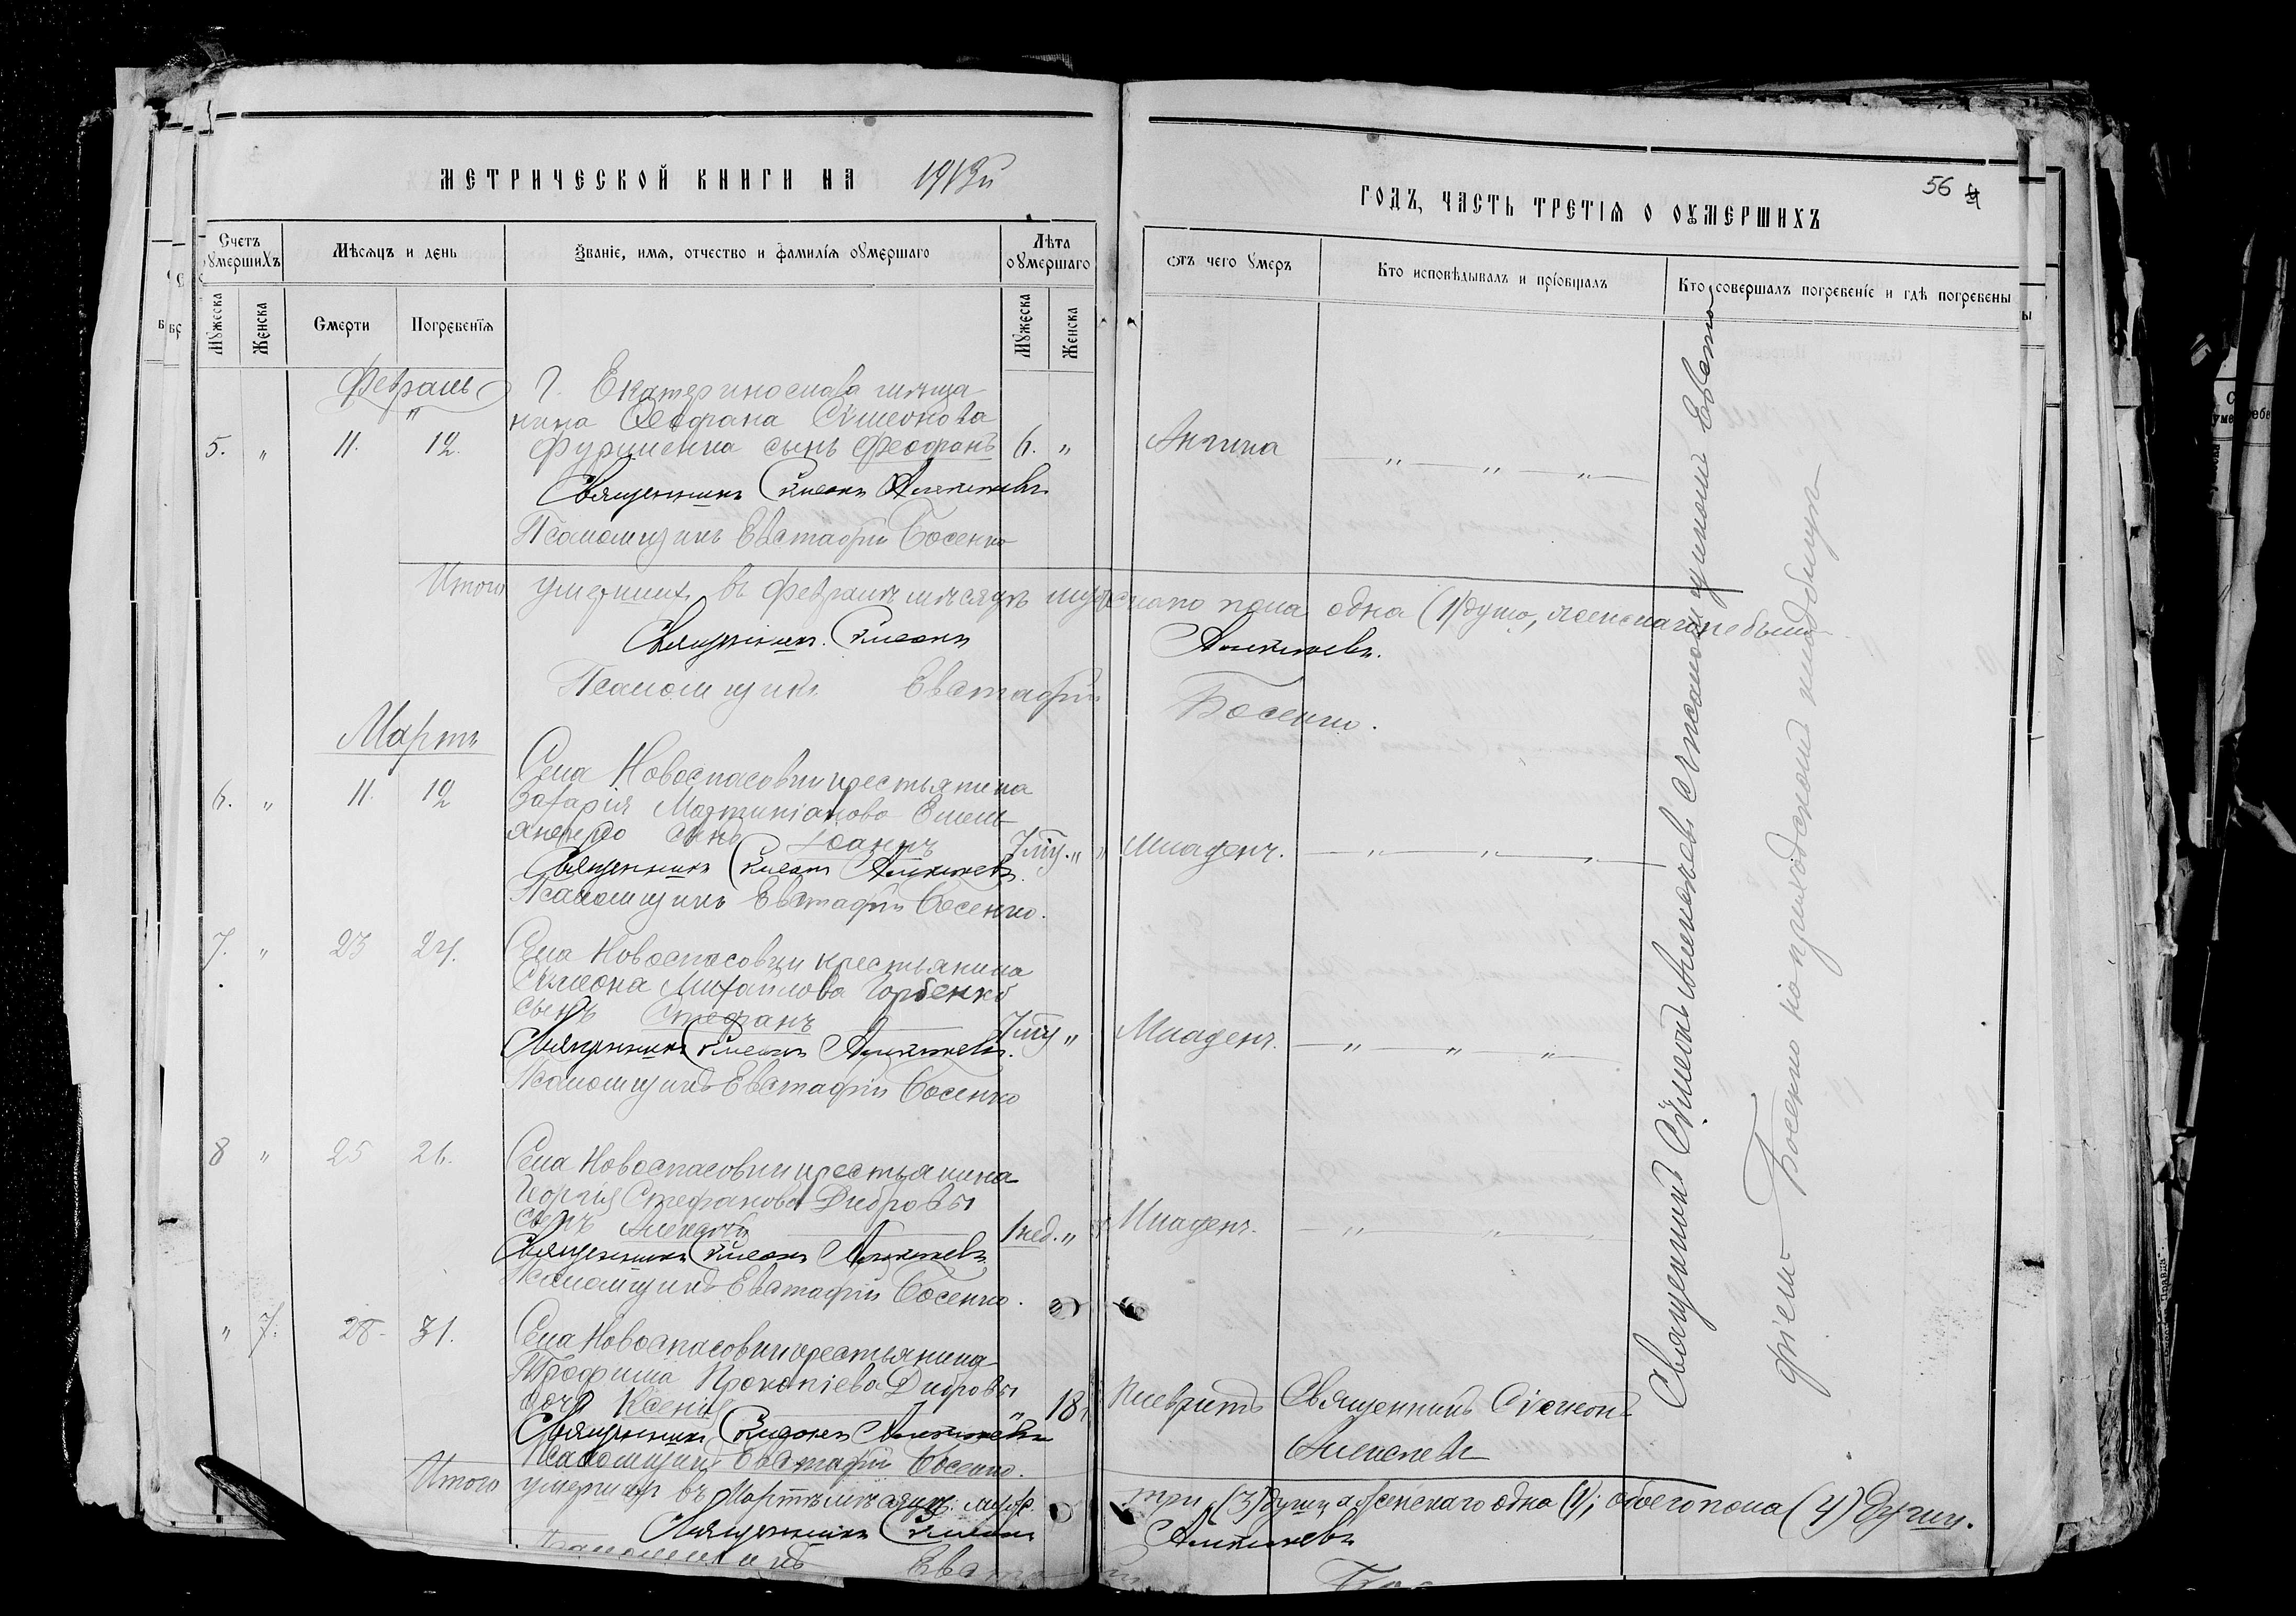 МЕТРИЧЕСКОЙ КНИГИ НА 1913й
ГОДЪ, ЧАСТЬ ТРЕТІЯ О ОУМЕРШИХЪ
56
Счетъ оумершихъ
Мѣсяцъ и день
Званіе, имя, отчество и фамилія оумершаго
Лѣта оумершаго
отъ чего умеръ
Кто исповѣдывалъ и пріобщалъ
Кто совершалъ погребеніе и гдѣ погребены
Мужеска
Женска
Смерти
Погребенія
Мужеска
Женска
Февраль
Г. Екатеринослава мѣща-
нина Ѳеофана Сѵмеонова
5. " 11. 12. сынъ Феофанъ 6. " Ангина " " "
Священникъ Сѵмеонъ Алексѣевъ
Псаломщикъ Евстафій Босенко
Итого умершихъ въ Февралѣ мѣсяцѣ мужскаго пола одна (1) душа, женскаго не было
Священникъ Сѵмеонъ Алексѣевъ.
Псаломщикъ Евстафій Босенко.
Мартъ
Села Новоспасовки крестьянина
6. " 11. 12 Захарія Мартиніанова Емель-
яненко сынъ Іоаннъ " Младенч. " " "
Священникъ Сѵмеонъ Алексѣевъ.
Псаломщикъ Евстафій Босенко.
7. " 23 24. Села Новоспасовки крестьянина
Сѵмеона Михайлова Горбенко
сынъ Стефанъ " Младенч. " " "
Священникъ Сѵмеонъ Алексѣевъ.
Псаломщикъ Евстафій Босенко
8 " 25 26. Села Новоспасовки крестьянина
Георгія Стефанова Дибровы
сынъ Алексѣй 1 нед. " Младенч. " " "
Священникъ Сѵмеонъ Алексѣевъ
Псаломщикъ Евстафій Босенко.
" 7. 28. 31. Села Новоспасовки крестьянина
Трофима Прокопіева Дибровы
дочь Ксенія " 18 Плевритъ Священникъ Сѵмеонъ
Алексѣевъ
Священникъ Сѵмеонъ Алексѣевъ
Псаломщикъ Евстафій Босенко.
Итого умершихъ въ Мартѣ мѣсяцѣ три (3) души, а женскаго одна (1); обоего пола (4) души.
Священникъ Сѵмеонъ Алексѣевъ
Псаломщикъ
Священникъ Сѵмеонъ Алексѣевъ съ псаломщикомъ Евста-
фіемъ Босенко на приходскомъ кладбищѣ